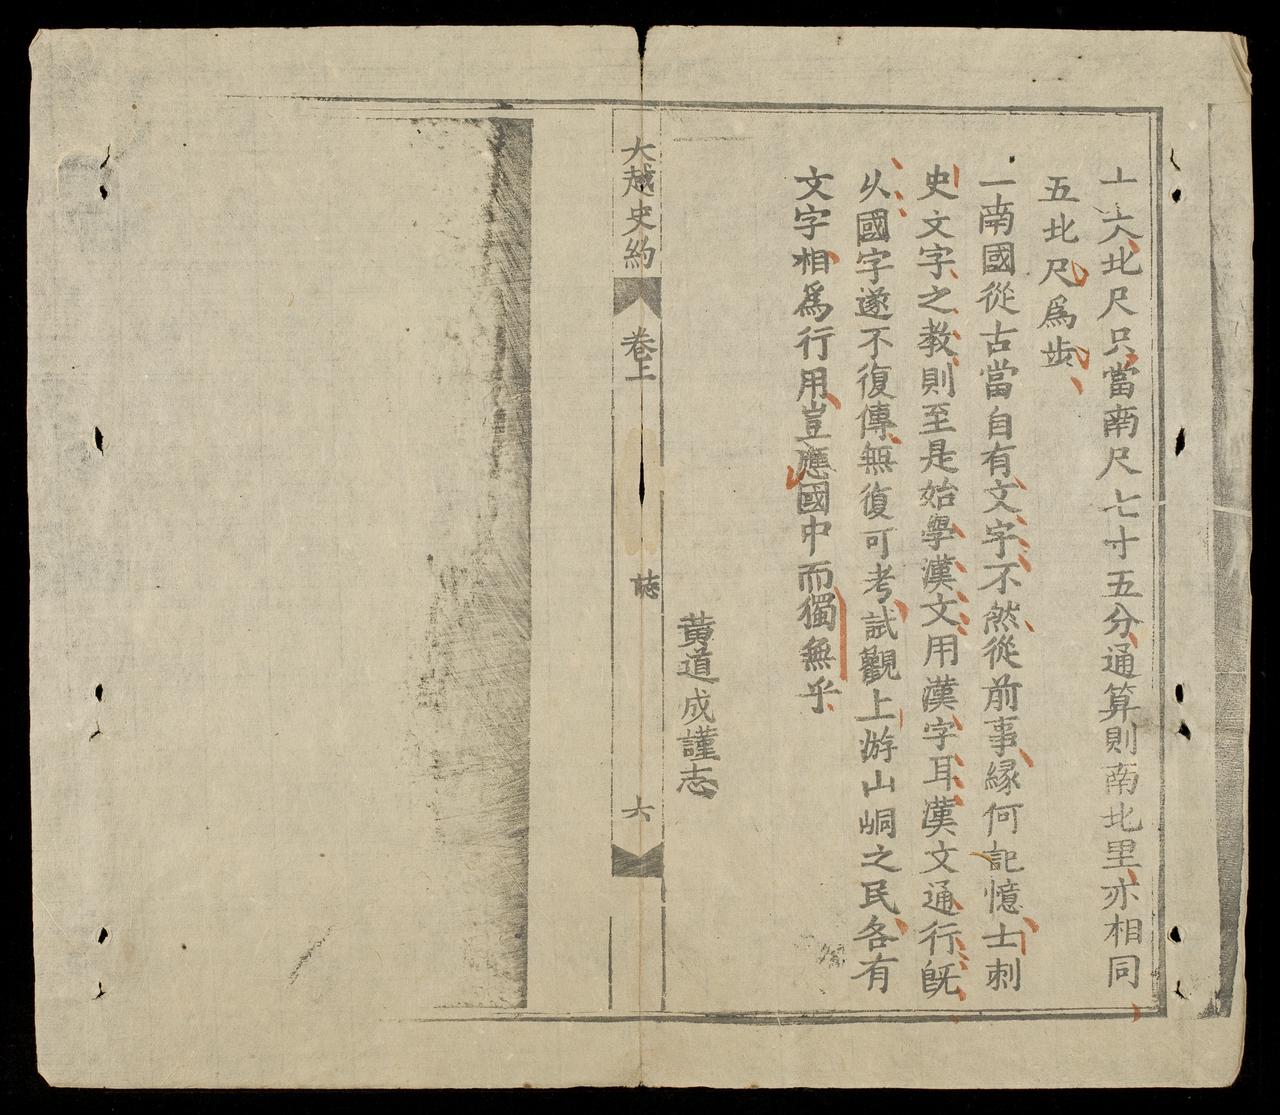 大北尺只當南尺七寸五分通算則南北里亦相同
五北尺爲步
一南國從古當自有文字不然從前事縁何記憶士刺
史文字之教則至是始學漢文用漢字耳漢文通行旣
以國字遂不復傳無復可考試觀上游山峒之民各有
文字相爲行用豈應國中而獨無乎
黃道成謹志
大越史約
卷上
誌
六